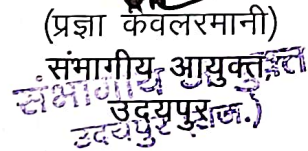 (प्रज्ञा केवलरमानी)
संभागीय आयुक्त,
उदयपुर
संभागीय आयुक्त
उदयपुर (राज.)